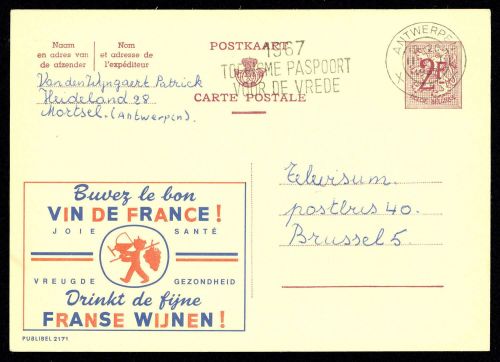 Naam
en adres van
de afzender
Nom
et adresse de
l'expéditeur
Vanden Wijngaert Patrick
Heideland 28
Mortsel. (Antwerpen)
POSTKAART
CARTE POSTALE
1967
TOERISME PASPOORT
VOOR DE VREDE
ANTWERPEN
2F
BELGIE-BELGIQUE
Televisum.
postbus 40.
Brussel 5.
Buvez le bon
VIN DE FRANCE !
JOIE SANTÉ
VREUGDE GEZONDHEID
Drinkt de fijne
FRANSE WIJNEN !
PUBLIBEL 2171